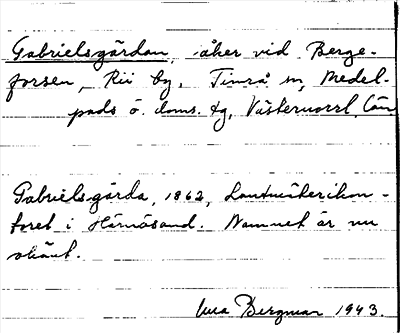 Gabrielsgärdan, åker vid Berge-
forsen, Rii by, Timrå sn, Medel-
pads ö. doms. tg, Västernorrl. län
Gabrielsgärda, 1862, Lantmäterikon-
toret i Härnösand. Namnet är nu
okänt.
Bergman 1943.